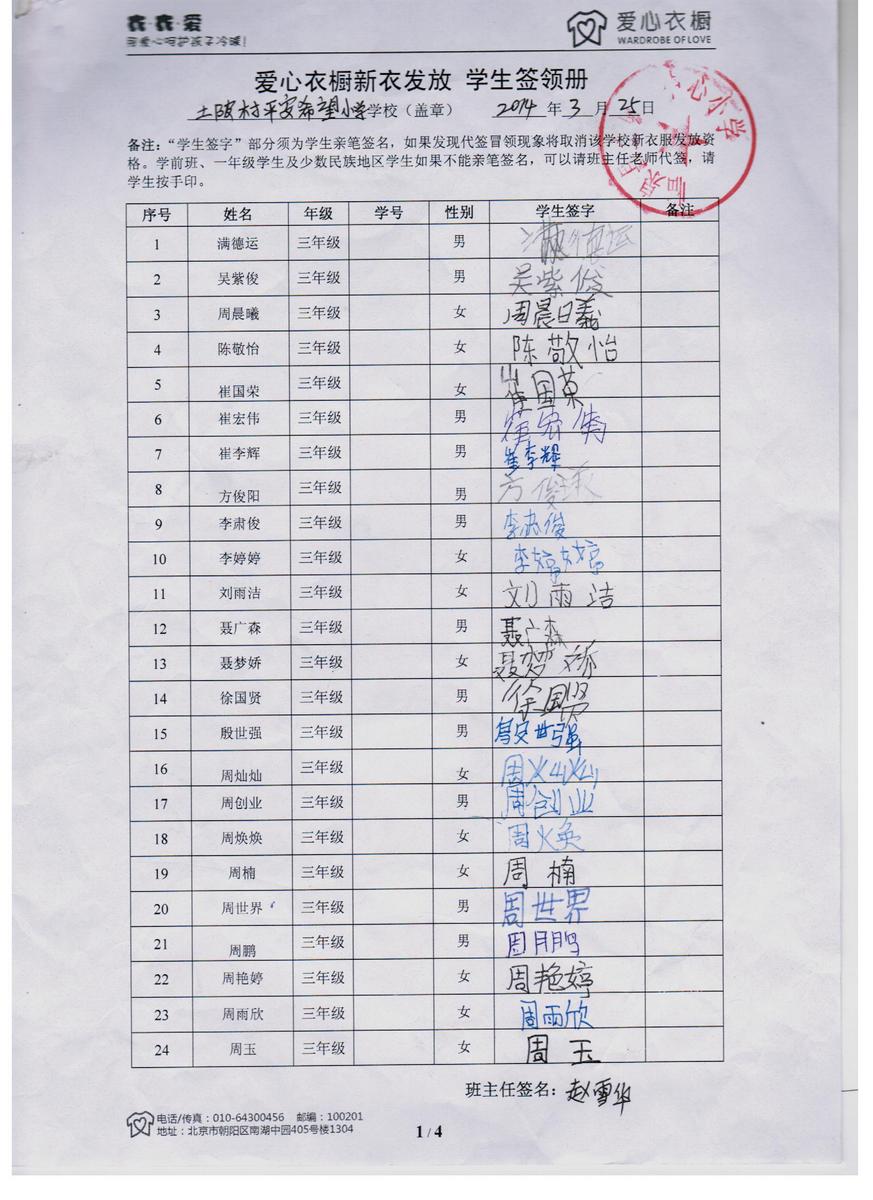 爱心衣橱
WARDROBE OF LOVE
爱心衣橱新衣发放 学生签领册
土陂村平安希望小学学校（盖章） 2014年3月25日
备注：“学生签字”部分须为学生亲笔签名，如果发现代签冒领现象将取消该学校新衣服发放资
格。学前班、一年级学生及少数民族地区学生如果不能亲笔签名，可以请班主任老师代签，请
学生按手印。
序号 姓名 年级 学号 性别 学生签字 备注
1 满德运 三年级 男 满德运
2 吴紫俊 三年级 男 吴紫俊
3 周晨曦 三年级 女 周晨曦
4 陈敬怡 三年级 女 陈敬怡
5 崔国荣 三年级 女 崔国荣
6 崔宏伟 三年级 男 崔宏伟
7 崔李辉 三年级 男 崔李辉
8 方俊阳 三年级 男 方俊
9 李肃俊 三年级 男 李肃俊
10 李婷婷 三年级 女 李婷婷
11 刘雨洁 三年级 女 刘雨洁
12 聂广森 三年级 男 聂广森
13 聂梦娇 三年级 女 聂梦娇
14 徐国贤 三年级 男 徐国贤
15 殷世强 三年级 男 殷世强
16 周灿灿 三年级 女 周灿灿
17 周创业 三年级 男 周创业
18 周焕焕 三年级 女 周焕
19 周楠 三年级 女 周楠
20 周世界 三年级 男 周世界
21 周鹏 三年级 男 周鹏
22 周艳婷 三年级 女 周艳婷
23 周雨欣 三年级 女 周雨欣
24 周玉 三年级 女 周玉
班主任签名：赵雪华
电话/传真：010-64300456 邮编：100201
地址：北京市朝阳区南湖中园405号楼1304
1 / 4